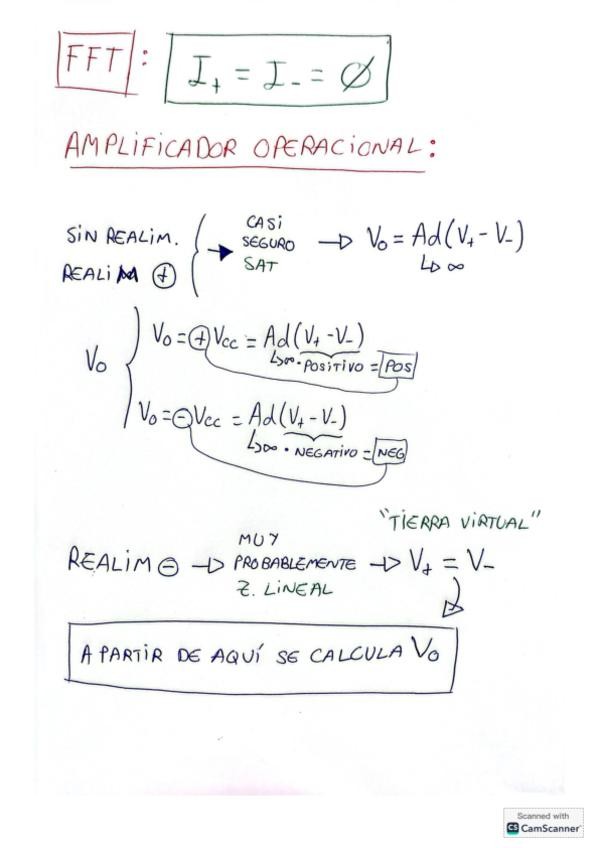 FFT : I₊ = I₋ = Ø
AMPLIFICADOR OPERACIONAL:
SIN REALIM.
REALIM ⊕
CASI
SEGURO
SAT
V₀ = Ad(V₊ - V₋)
↳ ∞
V₀
V₀ = ⊕Vcc = Ad(V₊ - V₋)
↳ ∞ · POSITIVO = POS
V₀ = ⊖Vcc = Ad(V₊ - V₋)
↳ ∞ · NEGATIVO = NEG
"TIERRA VIRTUAL"
REALIM ⊖ → MUY
PROBABLEMENTE
Z. LINEAL
→ V₊ = V₋
A PARTIR DE AQUÍ SE CALCULA V₀
Scanned with
CS CamScanner